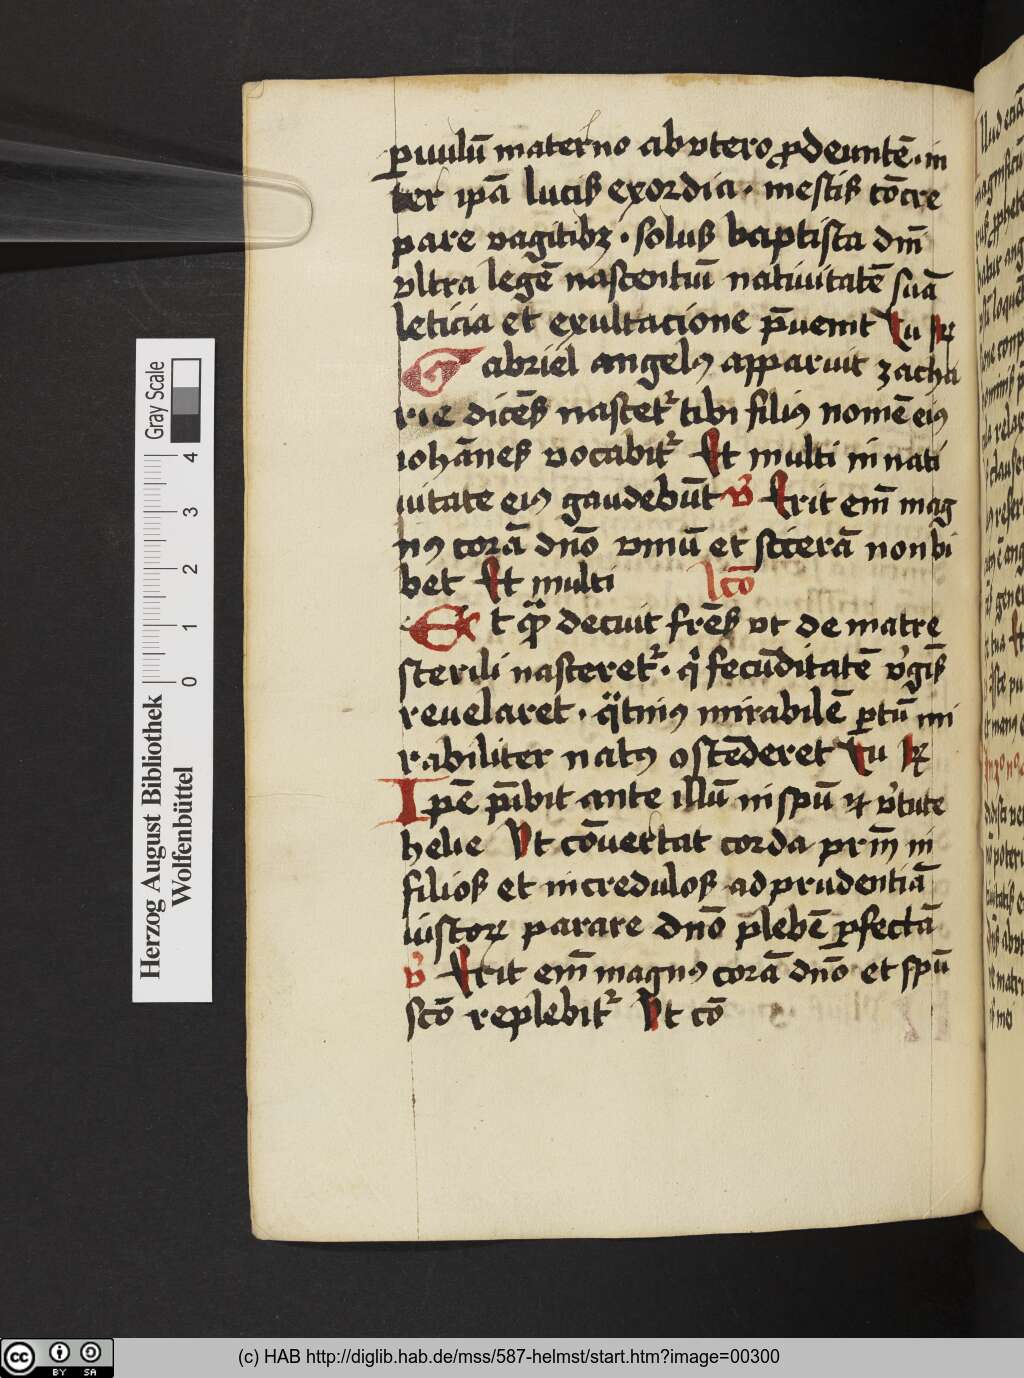 puulū materno ab vtero ꝓdeuntē · in
ter ip̄a lucis exordia · mestis cōcre
pare vagitibꝫ · solus baptista dm̄
vltra legē nascentiū natiuitatē suā
leticia et exultacione p̄uenit Tu ℟
Gabriel angelꝰ apparuit zacha
rie dicēs nascetᷣ tibi filiꝰ nomē eiꝰ
iohānes vocabitᷣ Et multi in nati
uitate eiꝰ gaudebūt v̓ Erit em̄ mag
nꝰ corā dn̄o vinū et sicerā non bi
bet Et multi lc̄o
Et qͣ decuit fr̄es vt de matre
sterili nasceretᷣ · qͥ fecūditatē v̓gīs
reuelaret · qͣtinꝰ mirabilē ꝑtū mi
rabiliter natꝰ ostēderet Tu ℟
Ipē p̄ibit ante illū in spū et v̓tute
helie Vt cōuertat corda prm̄ in
filios et incredulos ad prudentiā
iustoꝝ parare dn̄o plebē ꝑfectā
v̓ Erit em̄ magnꝰ corā dn̄o et spū
scō replebitᷣ Vt cō
Herzog August Bibliothek
Wolfenbüttel
Gray Scale
0 1 2 3 4
cc BY SA
(c) HAB http://diglib.hab.de/mss/587-helmst/start.htm?image=00300